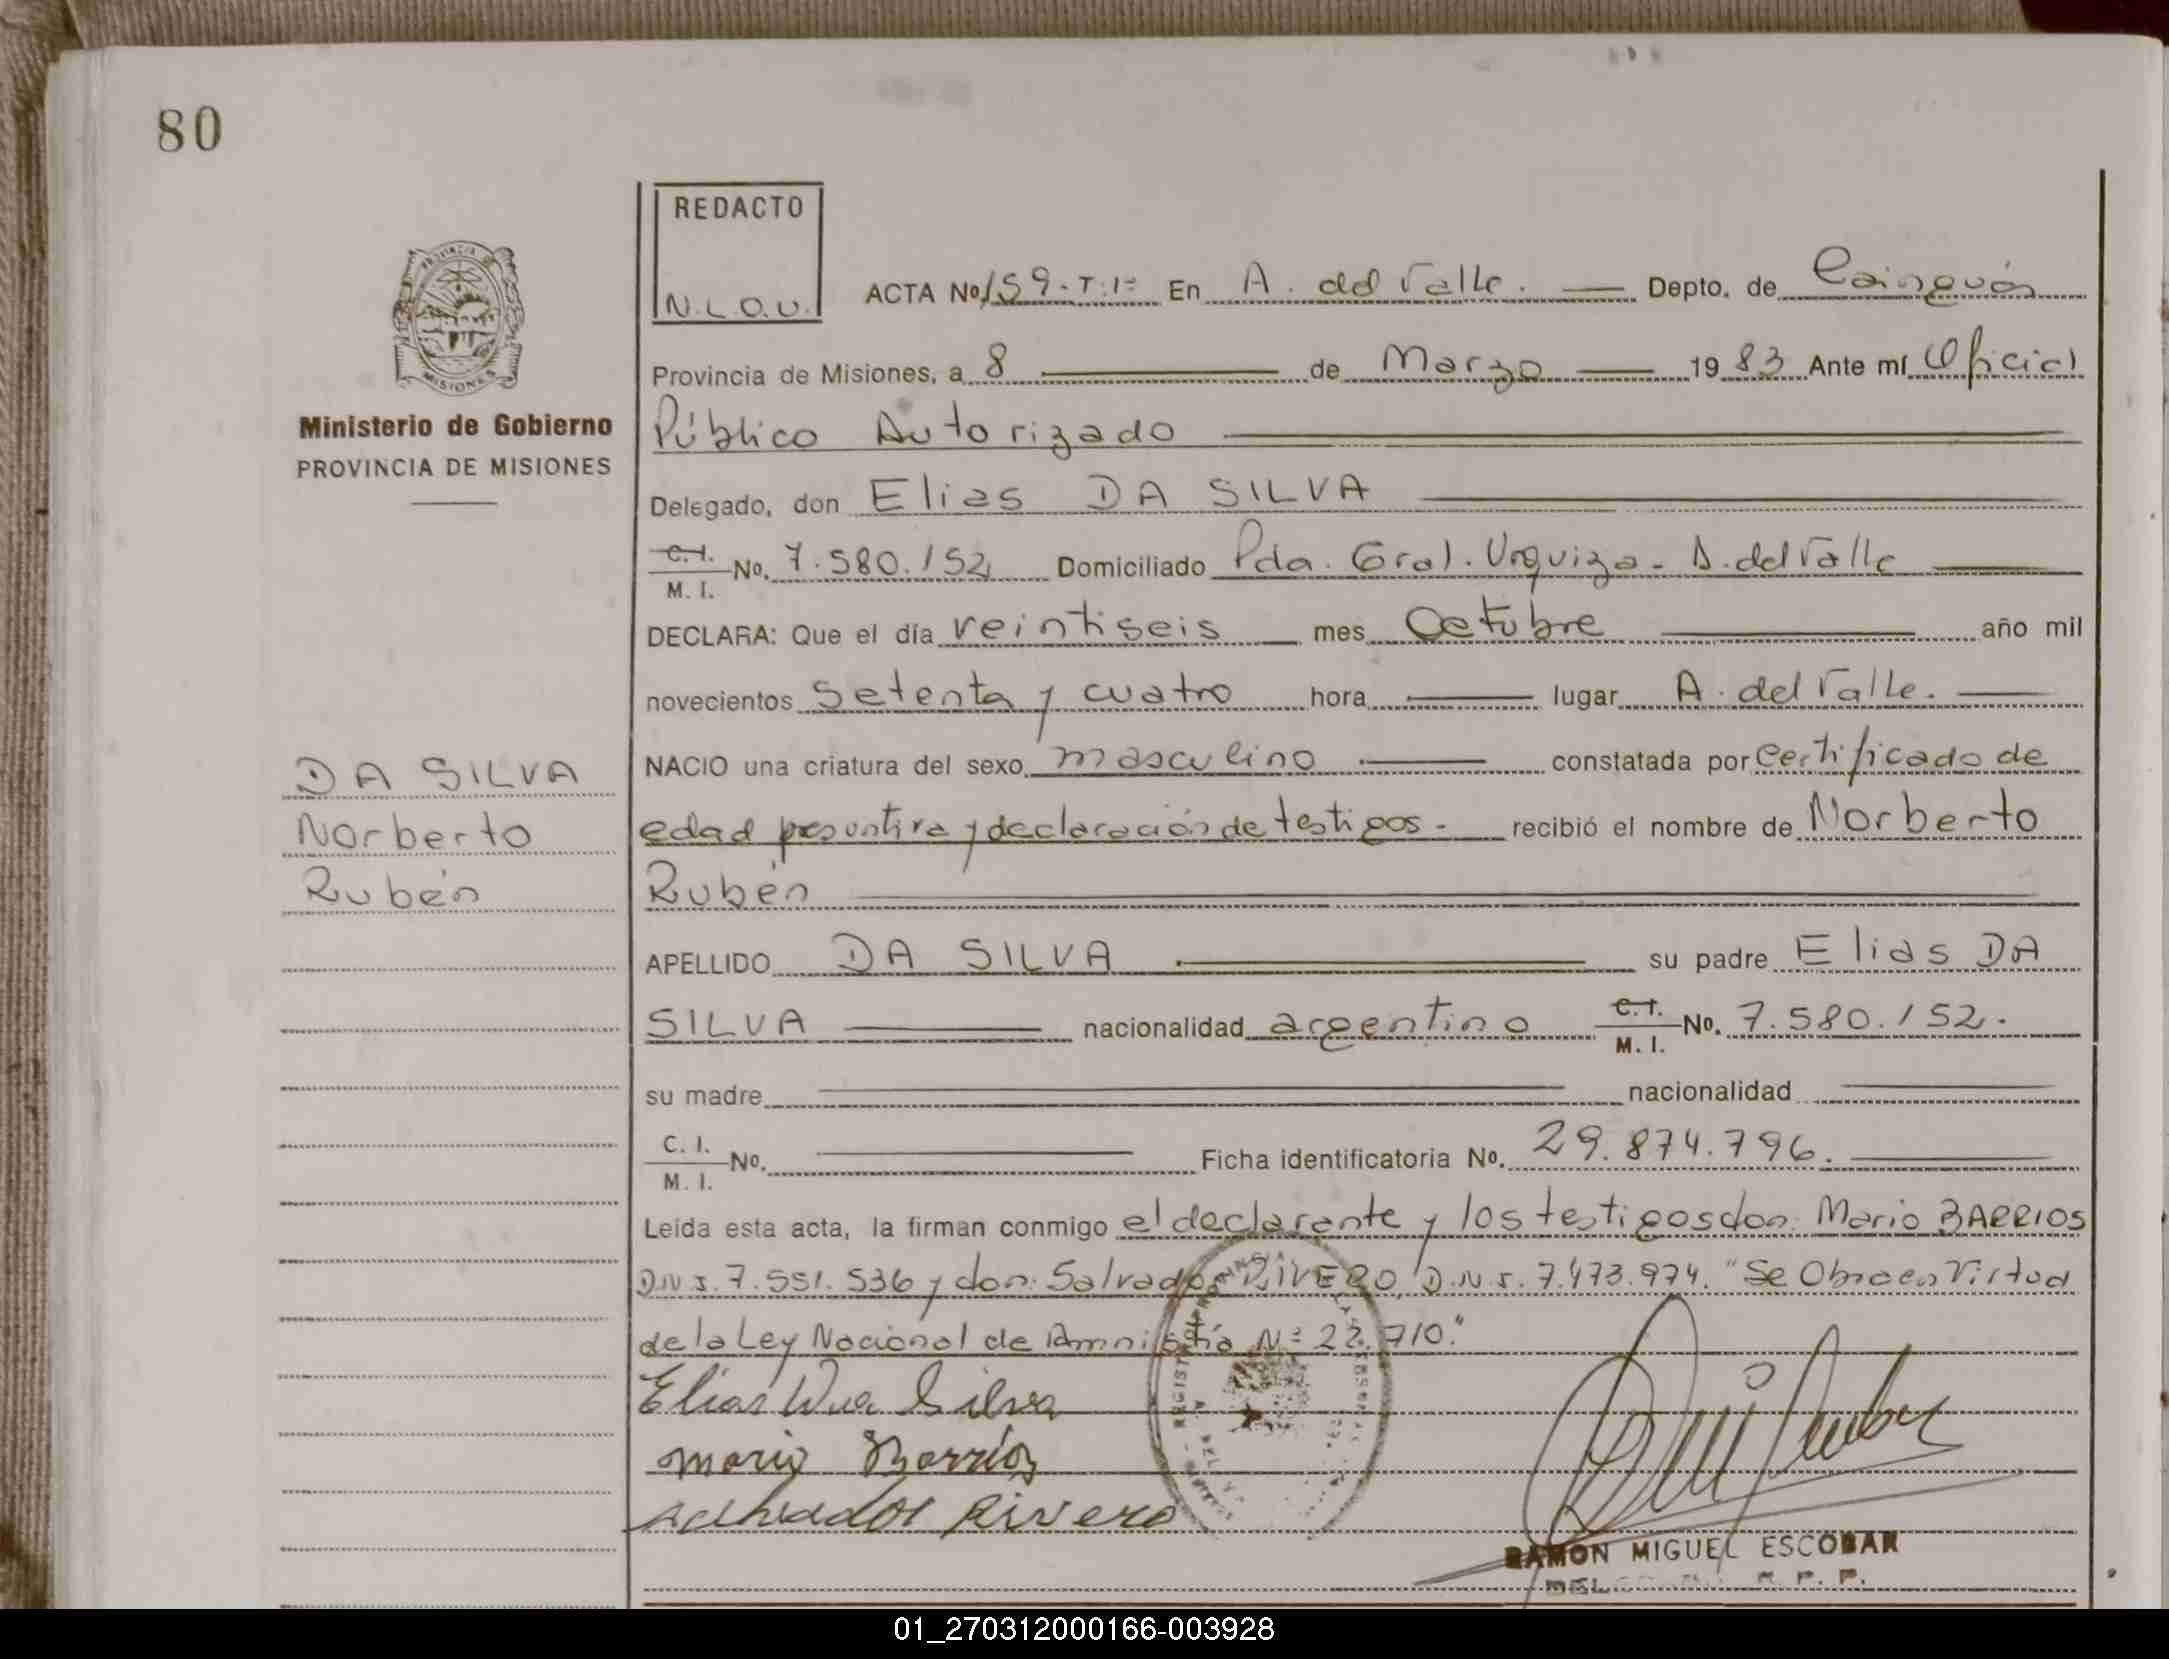 80
REDACTO
N.L.O.U.
ACTA No 159-T:1º En A. del Valle. Depto. de Cainguás
Provincia de Misiones, a 8 de Marzo 1983 Ante mí Oficial
Público Autorizado
Delegado, don Elias DA SILVA
C.I. M.I. No. 7.580.152 Domiciliado Pda. Gral. Urquiza - A. del Valle
DECLARA: Que el día veintiseis mes Octubre año mil
novecientos setenta y cuatro hora lugar A. del Valle.
NACIO una criatura del sexo masculino constatada por Certificado de
edad presuntiva y declaración de testigos - recibió el nombre de Norberto
Rubén
APELLIDO DA SILVA su padre Elias DA
SILVA nacionalidad argentino C.I. M.I. No. 7.580.152.
su madre nacionalidad
C.I. M.I. No. Ficha identificatoria No. 29.874.796.
Leída esta acta, la firman conmigo el declarante y los testigos don: Mario BARRIOS
D.N.I. 7.551.536 y don: Salvador RIVERO, D.N.I. 7.473.974. "Se Obra en Virtud
de la Ley Nacional de Amnistía Nº 22.710."
Elias Silva
Mario Barrios
Salvador Rivero
RAMON MIGUEL ESCOBAR
PROVINCIA
MISIONES
Ministerio de Gobierno
PROVINCIA DE MISIONES
DA SILVA
Norberto
Rubén
01_270312000166-003928